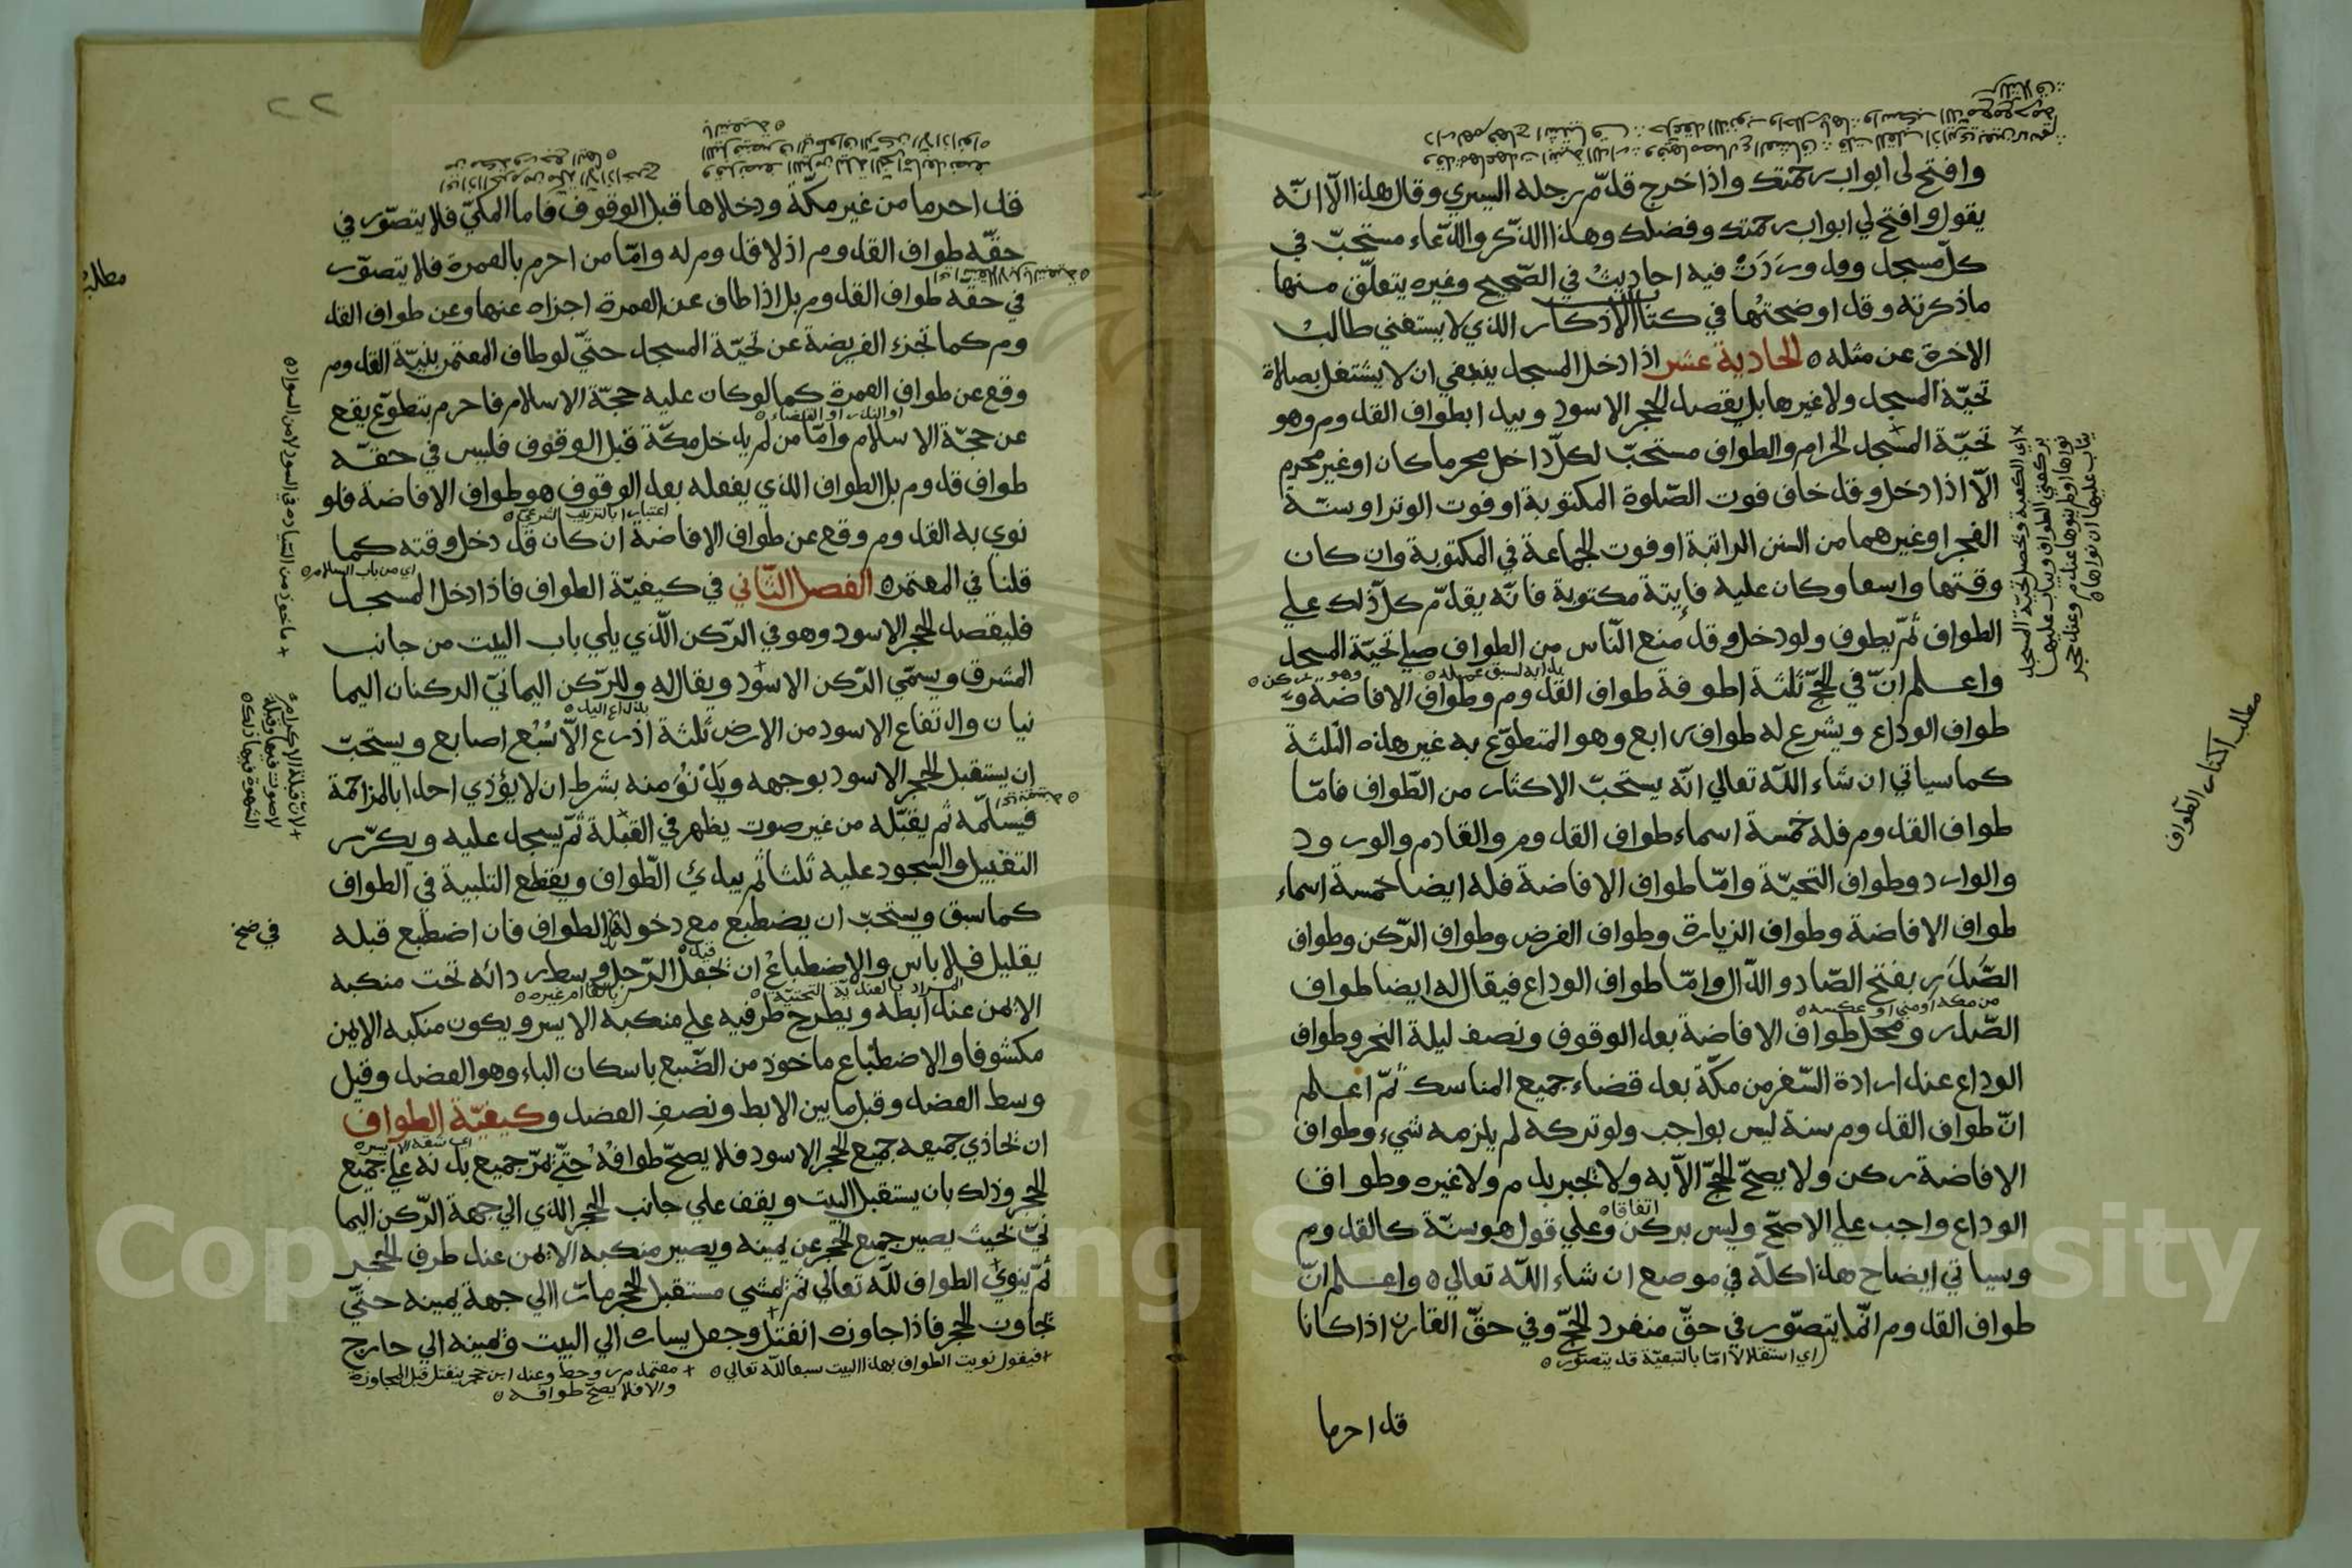 وافتح لي ابواب رحمتك واذا خرج قدّم رجله اليسري وقال هذا الّا انّه
يقول وافتح لي ابواب رحمتك وفضلك وهذا الذّكر والدّعاء مستحبّ في
كلّ مسجد وقد ورَدَتْ فيه احاديثُ في الصّحيح وغيره يتعلّق منها
ماذكرته وقد اوضحتُها في كتاب الاذكار الذي لا يستغني طالبُ
الاخرة عن مثله ه الحادية عشر اذا دخل المسجد ينبغي ان لا يشتغل بصلاة
تحيّة المسجد ولا غيرها بل يقصد الحجر الاسود ويبدا بطواف القدوم وهو
تحيّة المسجد الحرام والطواف مستحبّ لكلّ داخل محرما كان او غير محرم
الّا اذا دخل وقد خاف فوت الصّلوة المكتوبة او فوت الوتر او سنّة
الفجر او غيرهما من السنن الراتبة او فوت الجماعة في المكتوبة وان كان
وقتها واسعا وكان عليه فايتة مكتوبة فانّه يقدّم كلّ ذلك علي
الطواف ثمّ يطوف ولو دخل وقد مُنع النّاس من الطواف صلي تحيّة المسجد
واعلم انّ في الحجّ ثلثة اطوفة طواف القدوم وطواف الافاضة و
طواف الوداع ويشرع له طواف رابع وهو المتطوّع به غير هذه الثلثة
كما سياتي ان شاء اللّه تعالي انّه يستحبّ الاكثار من الطّواف فامّا
طواف القدوم فله خمسة اسماء طواف القدوم والقادم والورود
والوارد وطواف التحيّة وامّا طواف الافاضة فله ايضا خمسة اسماء
طواف الافاضة وطواف الزيارة وطواف الفرض وطواف الرّكن وطواف
الصَّدَر بفتح الصّاد والدّال وامّا طواف الوداع فيقال له ايضا طواف
من مكة او مني او عكسه ه
الصّدر ومحل طواف الافاضة بعد الوقوف ونصف ليلة النحر وطواف
الوداع عند ارادة السّفر من مكّة بعد قضاء جميع المناسك ثمّ اعلم
انّ طواف القدوم سنة ليس بواجب ولو تركه لم يلزمه شيء وطواف
الافاضة ركن ولا يصحّ الحجّ الّا به ولا يجبر بدم ولا غيره وطواف
اتفاقا ه
الوداع واجب علي الاصحّ وليس بركن وعلي قول هو سنّة كالقدوم
وسياتي ايضاح هذا كلّه في موضع ان شاء اللّه تعالي ه واعلم انّ
طواف القدوم انّما يتصوّر في حقّ منفرد الحجّ وفي حقّ القارن اذا كانا
اي استقلالا امّا بالتبعيّة قد يتصور ه
قد احرما
مطلب اكثار الطّواف
×اي الكعبة وتحصل تحيّة المسجد
بركعتي الطواف ويثاب عليهما
نواها او لم ينوها عند م ر وعند حجر
يثاب عليهما ان نواها ه
٢٢
قد احرما من غير مكّة ودخلاها قبل الوقوف فاما المكيّ فلا يتصوّر في
حقّه طواف القدوم اذ لا قدوم له وامّا من احرم بالعمرة فلا يتصوّر
في حقّه طواف القدوم بل اذا طاف عن العمرة اجزاه عنها وعن طواف القد
وم كما تجزء الفريضة عن تحيّة المسجد حتّي لو طاف المعتمر بنيّة القدوم
وقع عن طواف العمرة كما لو كان عليه حجّة الاسلام فاحرم بتطوّع يقع
او النذر او القضاء ه
عن حجّة الاسلام وامّا من لم يدخل مكّة قبل الوقوف فليس في حقّه
طواف قدوم بل الطواف الذي يفعله بعد الوقوف هو طواف الافاضة فلو
اعتبارا بالترتيب الشرعي ه
نوي به القدوم وقع عن طواف الافاضة ان كان قد دخل وقته كما
اي من باب السلام ه
قلنا في المعتمر ه الفصل الثّاني في كيفيّة الطواف فاذا دخل المسجد
فليقصد الحجر الاسود وهو في الرّكن الّذي يلي باب البيت من جانب
المشرق ويسمّي الرّكن الاسود ويقال له وللرّكن اليمانيّ الركنان اليما
بذراع اليد ه
نيان وارتفاع الاسود من الارض ثلثة اذرع الّا سُبُع اصابع ويستحبّ
ان يستقبل الحجر الاسود بوجهه ويَدْنُوَ منه بشرط ان لا يؤذي احدا بالمزاحمة
فيسلمّه ثم يقبّله من غير صوت يظهر في القبلة ثمّ يسجد عليه ويكرّر
التقبيل والسجود عليه ثلثا ثم يبدئ الطّواف ويقطع التلبية في الطواف
كما سبق ويستحبّ ان يضطبع مع دخوله الطواف فان اضطبع قبله
بقليل فلا باس والاضطباعُ ان يجعل الرّجل وسط ردائه تحت منكبه
الايمن عند ابطه ويطرح طرفيه علي منكبه الايسر ويكون منكبه الايمن
مكشوفا والاضطباع ماخوذ من الضّبع باسكان الباء وهو العضد وقيل
وسط العضد وقيل ما بين الابط ونصف العضد وكيفيّة الطواف
اي شقه الايسر ه
ان يحاذي جميعه جميع الحجر الاسود فلا يصحّ طوافُهُ حتّي يمرّ جميع بدنه علي جميع
الحجر وذلك بان يستقبل البيت ويقف علي جانب الحجر الذي الي جهة الرّكن اليما
نيّ بحيث يصير جميع الحجر عن يمينه ويصير منكبه الايمن عند طرف الحجر
ثمّ ينوي الطواف للّه تعالي ثمّ يمشي مستقبل الحجر مارّا الي جهة يمينه حتّي
يجاوز الحجر فاذا جاوزه انفتل وجعل يساره الي البيت ويمينه الي خارج
+فيقول نويت الطواف بهذا البيت سبعا للّه تعالي ه + معتمد م ر وحط وعند ابن حجر ينفتل قبل المجاوزة
والا فلا يصحّ طوافه ه
مطلب
+ ماخوذ من السّيادة في السودد لا من السواد ه
+لانّ قبلة الاكرام
لا صوت فيها وقبلة
الشهوة فيها ذلك ه
في صح